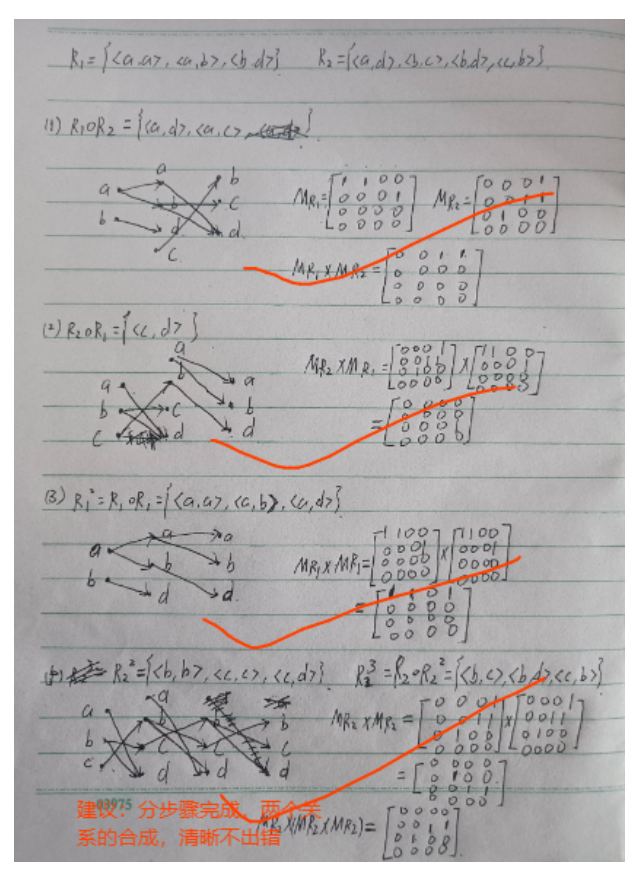 R₁={<a,a>,<a,b>,<b,d>} R₂={<a,d>,<b,c>,<b,d>,<c,b>}
(1) R₁∘R₂={<a,d>,<a,c>}
a a b
b b c
d d
c
M_R₁=[1 1 0 0
0 0 0 1
0 0 0 0
0 0 0 0]
M_R₂=[0 0 0 1
0 0 1 1
0 1 0 0
0 0 0 0]
M_R₁×M_R₂=[0 0 1 1
0 0 0 0
0 0 0 0
0 0 0 0]
(2) R₂∘R₁={<c,d>}
a a a
b b b
c c d
d
M_R₂×M_R₁=[0001
0011
0100
0000]×[1 1 0 0
0 0 0 1
0 0 0 0
0 0 0 0]
=[0 0 0 0
0 0 0 0
0 0 0
0 0 0 0]
(3) R₁²=R₁∘R₁={<a,a>,<a,b>,<a,d>}
a a a
b b b
d d
M_R₁×M_R₁=[1 1 0 0
0 0 0 1
0 0 0 0
0 0 0 0]×[1 1 0 0
0 0 0 1
0 0 0 0
0 0 0 0]
=[1 1 0 1
0 0 0 0
0 0 0 0
0 0 0 0]
R₂²={<b,b>,<c,c>,<c,d>} R₂³=R₂∘R₂²={<b,c>,<b,d>,<c,b>}
a a
b b b b
c c c c
d d d
M_R₂×M_R₂=[0 0 0 1
0 0 1 1
0 1 0 0
0 0 0 0]×[0 0 0 1
0 0 1 1
0 1 0 0
0 0 0 0]
=[0 0 0 0
0 1 0 0
0 0 1 1
0 0 0 0]
03975
建议：分步骤完成，两个关
系的合成，清晰不出错
M_R₂×(M_R₂×M_R₂)=[0 0 0 0
0 0 1 1
0 1 0 0
0 0 0 0]